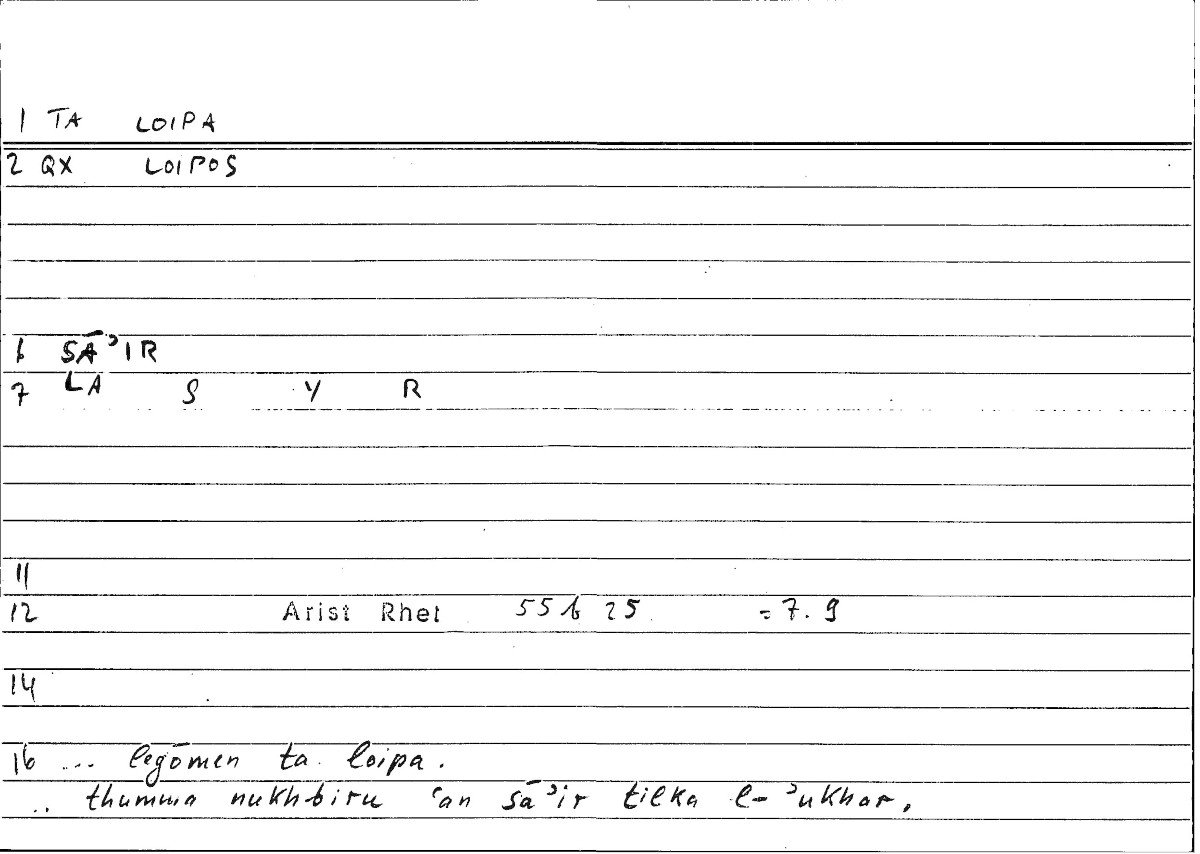 1 TA LOIPA
2 QX LOIPOS
6 SĀʾIR
7 LA S Y R
11
12 Arist Rhet 55b25 = 7.9
14
16 ... legōmen ta loipa.
.. thumma nukhbiru ʿan sāʾir tilka l-ʾukhar.